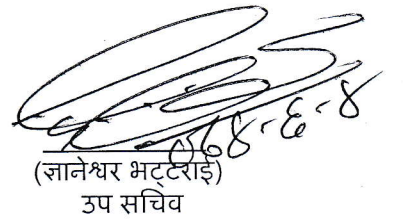 ०७४-६-४
(ज्ञानेश्वर भट्टराई)
उप सचिव